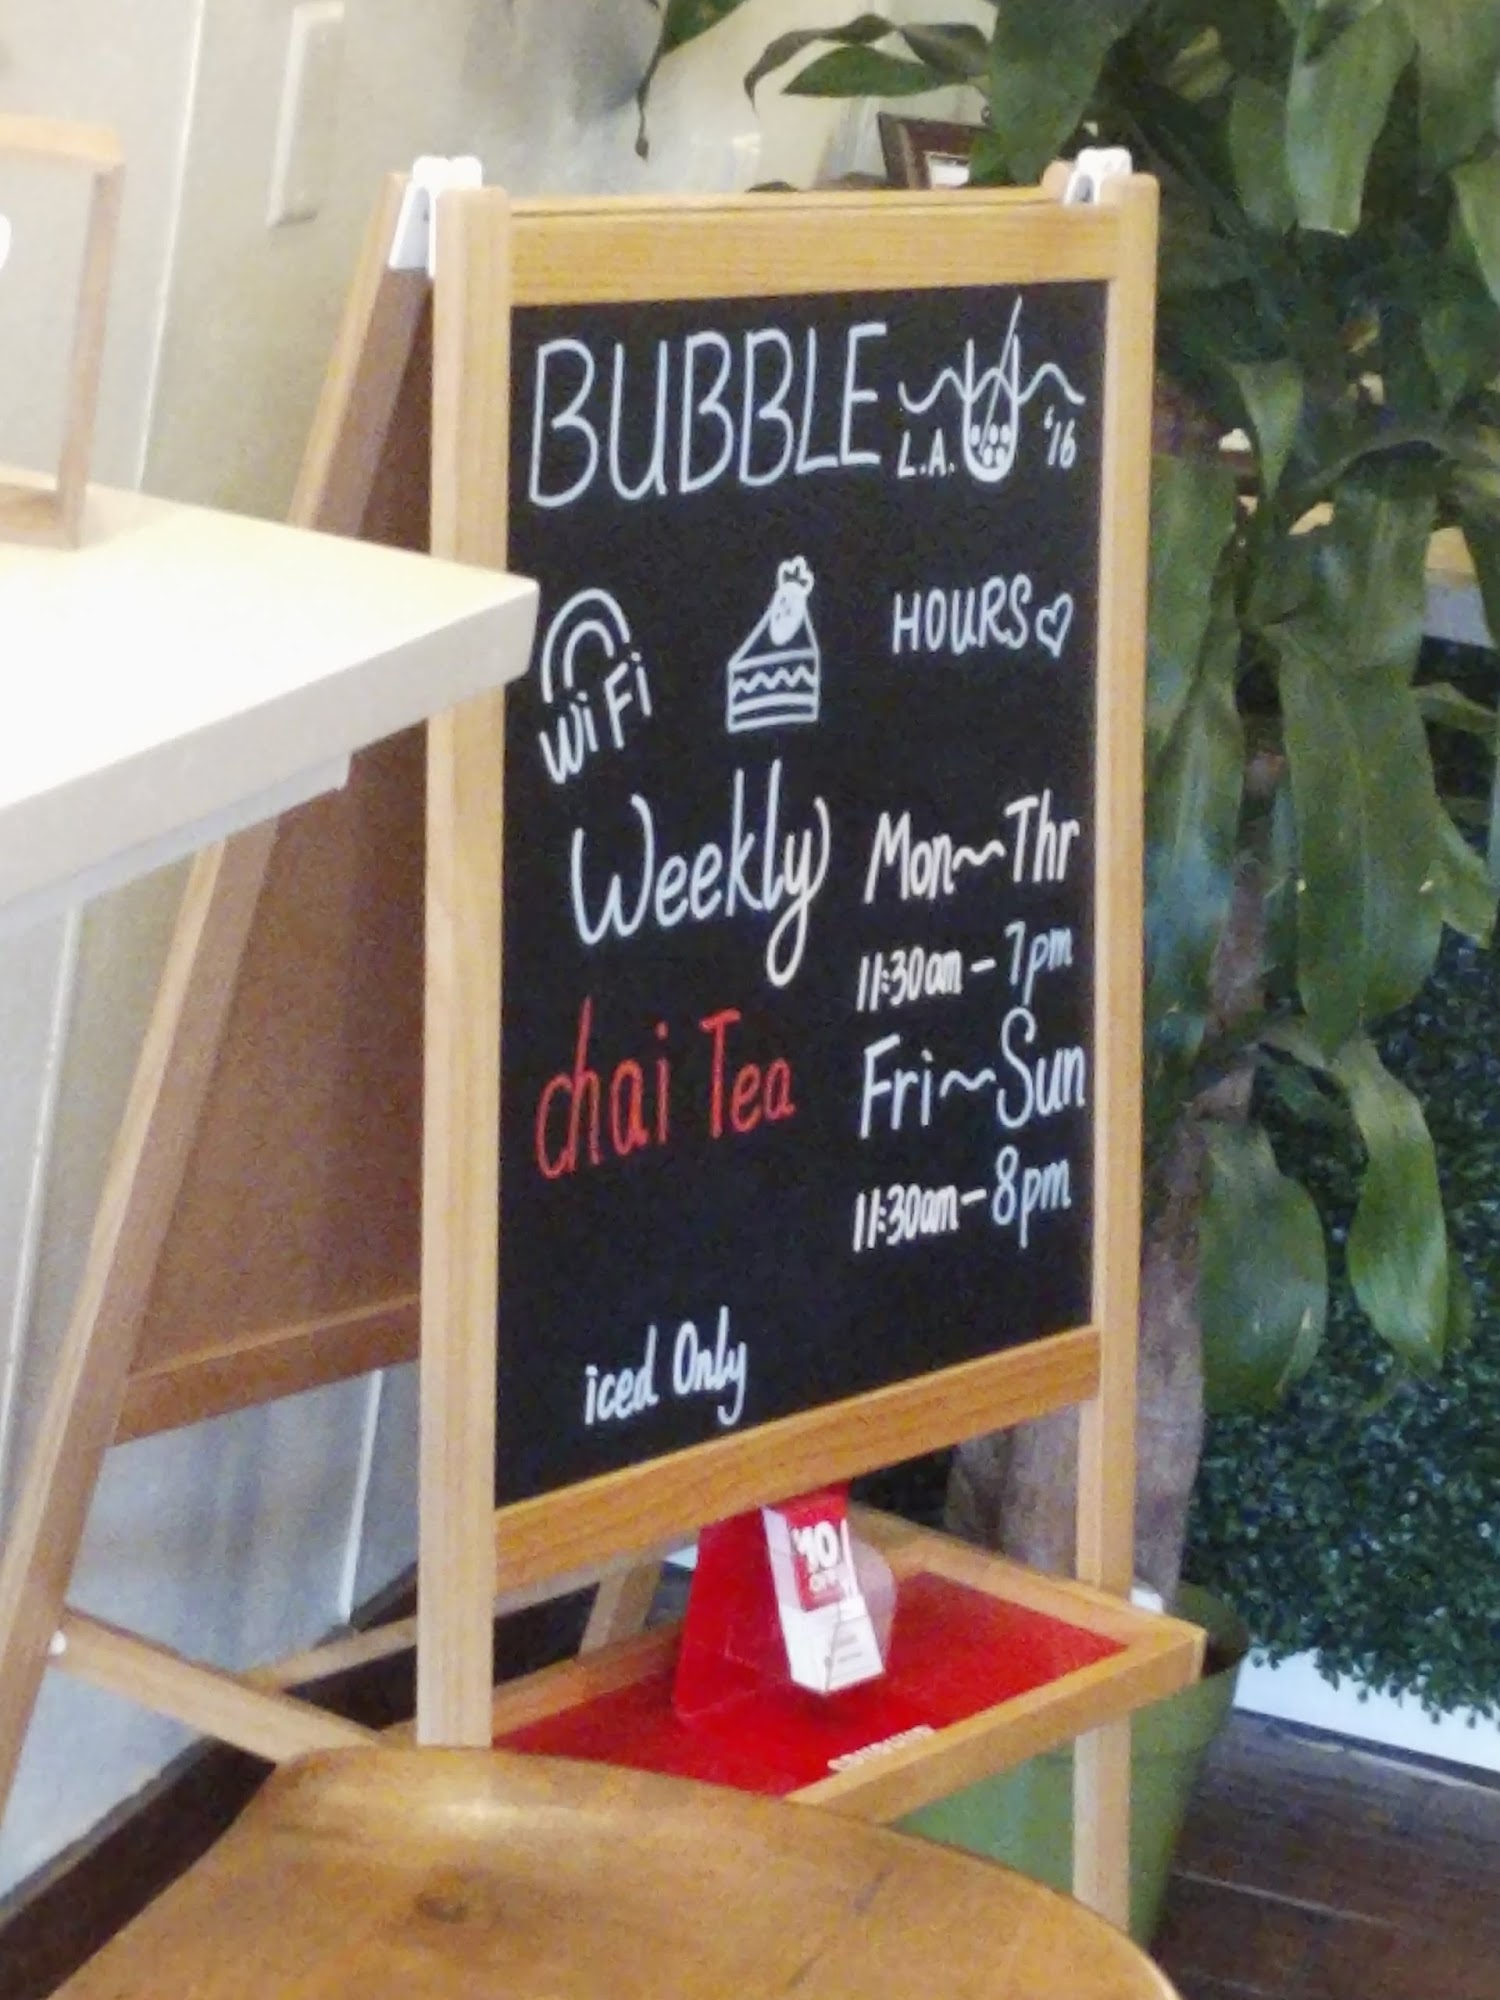 BUBBLE
L.A. '16
WiFi
HOURS
Weekly
chai Tea
iced Only
Mon~Thr
11:30am - 7pm
Fri~Sun
11:30am - 8pm
$10
OFF